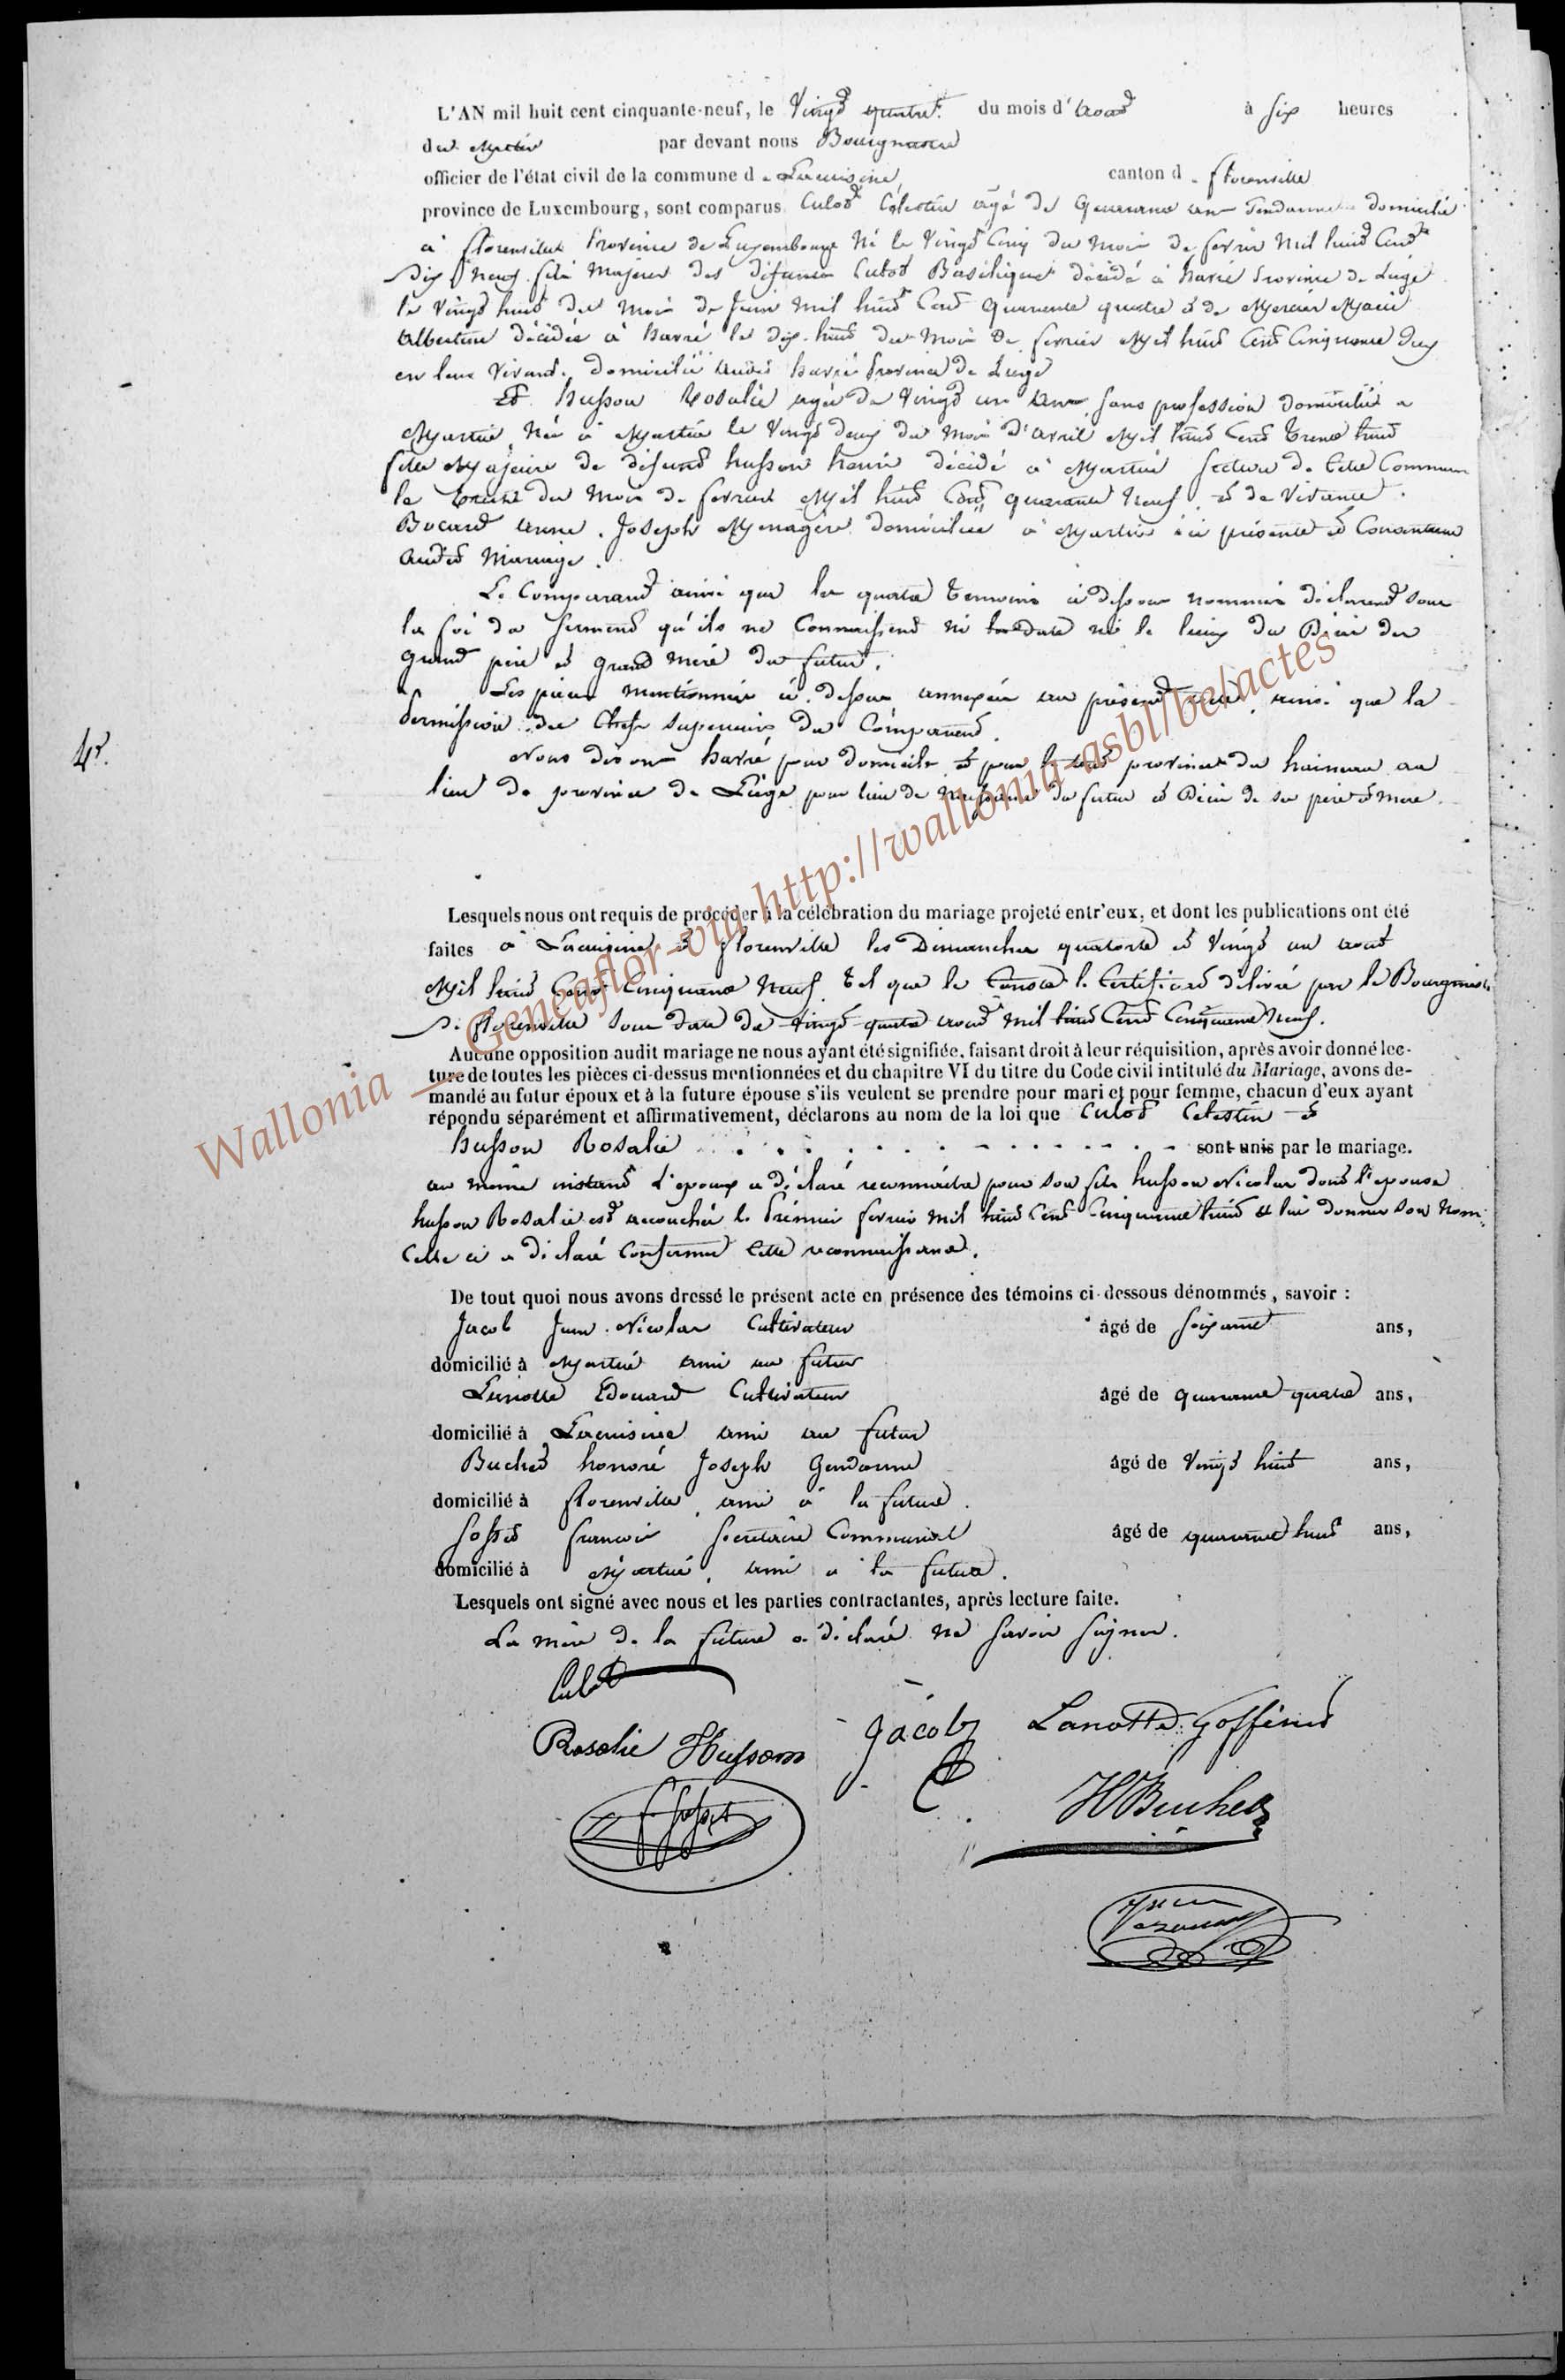 L'AN mil huit cent cinquante-neuf, le Vingt quatre du mois d'août à six heures
du Matin par devant nous Bourgmestre
officier de l'état civil de la commune de Lacuisine, canton de florenville
province de Luxembourg, sont comparus Culot Célestin agé de Quarante ans Gendarme domicilié
à florenville Province de Luxembourg Né le Vingt Cinq du mois de fevrier Mil huit Cent
Dix Neuf fils Majeur des défunts Culot Basilique décédé à havré Province de Liége
le Vingt huit du Mois de Juin Mil huit Cent Quarante quatre et de Mercier Marie
Albertine décédée à havré le dix-huit du Mois de fevrier Mil huit Cent Cinquante Deux
en leur Vivant domiciliés audit havré Province de Liege
Et husson Rosalie agée de Vingt un ans sans profession domiciliée a
Martué Née à Martué le Vingt deux du Mois d'avril Mil huit Cent Trente huit
fille Majeure de défunt husson henri décédé à Martué section de cette Commune
le trente du Mois de fevrier Mil huit Cent quarante Neuf et de Vivante
Bocard anne Joseph Menagère domiciliée à Martué ici présente et Consentante
audit Mariage.
Le Comparant ainsi que les quatre temoins ci dessous nommés déclarent sous
la foi du serment qu'ils ne Connaissent ni la date ni le lieu du Décès des
grand père et grand mère du futur.
Les pièces mentionnées ci dessus annexées au présent acte, ainsi que la
Permission des Chefs superieurs du Comparant.
Nous disons havré pour domicile et pour le tout province du hainaut au
lieu de province de Liége pour lieu de Naissance du futur et Décès de ses père et mère.
4e.
Lesquels nous ont requis de procéder à la célébration du mariage projeté entr'eux, et dont les publications ont été
faites à Lacuisine et florenville les Dimanches quatorze et Vingt un août
Mil huit Cent Cinquante Neuf tel que le Constate le Certificat délivré par le Bourgmestre
de florenville sous date du Vingt quatre août mil huit Cent Cinquante Neuf.
Aucune opposition audit mariage ne nous ayant été signifiée, faisant droit à leur réquisition, après avoir donné lec-
ture de toutes les pièces ci-dessus mentionnées et du chapitre VI du titre du Code civil intitulé du Mariage, avons de-
mandé au futur époux et à la future épouse s'ils veulent se prendre pour mari et pour femme, chacun d'eux ayant
répondu séparément et affirmativement, déclarons au nom de la loi que Culot Celestin et
husson Rosalie sont unis par le mariage.
au même instant l'epoux a déclaré reconnaitre pour son fils husson Nicolas dont l'epouse
husson Rosalie est accouchée le Prémier fevrier mil huit Cent Cinquante huit et lui donner son Nom.
Celle ci a déclaré Confirmer cette reconnaissance.
De tout quoi nous avons dressé le présent acte en présence des témoins ci-dessous dénommés, savoir :
Jacob Jean Nicolas Cultivateur âgé de soixante ans,
domicilié à Martué ami au futur
Lanotte Edouard Cultivateur âgé de quarante quatre ans,
domicilié à Lacuisine ami au futur
Buchet honoré Joseph Gendarme âgé de Vingt huit ans,
domicilié à florenville ami à la future.
Gosset francois secretaire Communal âgé de quarante huit ans,
domicilié à Martué, ami a la future.
Lesquels ont signé avec nous et les parties contractantes, après lecture faite.
La mère de la future a déclaré ne savoir signer.
Culot
Rosalie Husson Jacob Lanotte Goffinet
F Gosset HBuchet
Wallonia — Geneaflor-via http://wallonia-asbl/be/actes